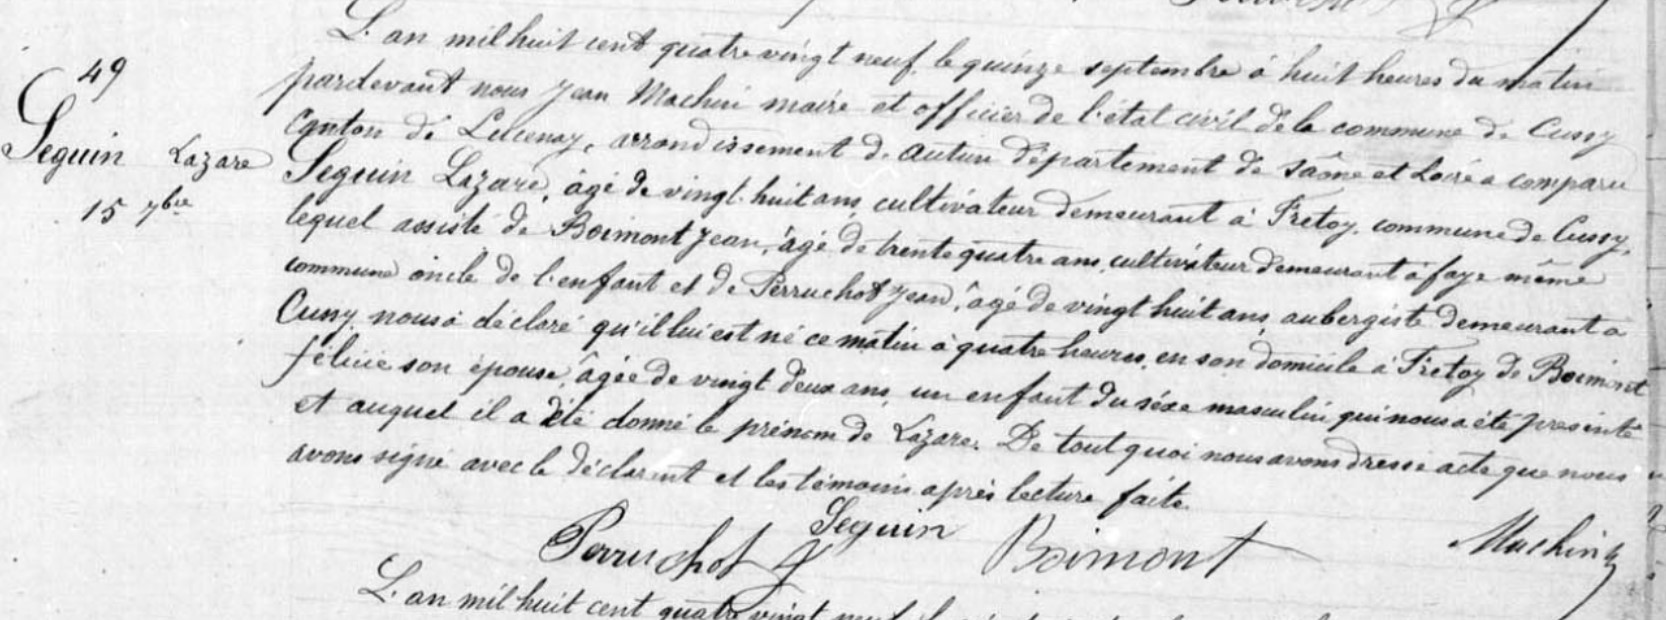 49
Seguin Lazare
15 7bre
L'an mil huit cent quatre vingt neuf, le quinze septembre à huit heures du matin
pardevant nous Jean Machin maire et officier de l'état civil de la commune de Cussy
Canton de Lucenay, arrondissement d'Autun département de Saône et Loire a comparu
Seguin Lazare, âgé de vingt-huit ans, cultivateur demeurant à Fretoy, commune de Cussy,
lequel assisté de Boimont Jean, âgé de trente quatre ans, cultivateur demeurant à faye même
commune oncle de l'enfant et de Perruchot Jean, âgé de vingt huit ans, aubergiste demeurant à
Cussy nous a déclaré qu'il lui est né ce matin à quatre heures, en son domicile à Fretoy de Boimont
félicie son épouse, âgée de vingt deux ans, un enfant du séxe masculin qui nous a été présenté
et auquel il a été donné le prénom de Lazare. De tout quoi nous avons dressé acte que nous
avons signé avec le déclarant et les témoins après lecture faite.
Perruchot Seguin Boimont Machin
L'an mil huit cent quatre vingt neuf